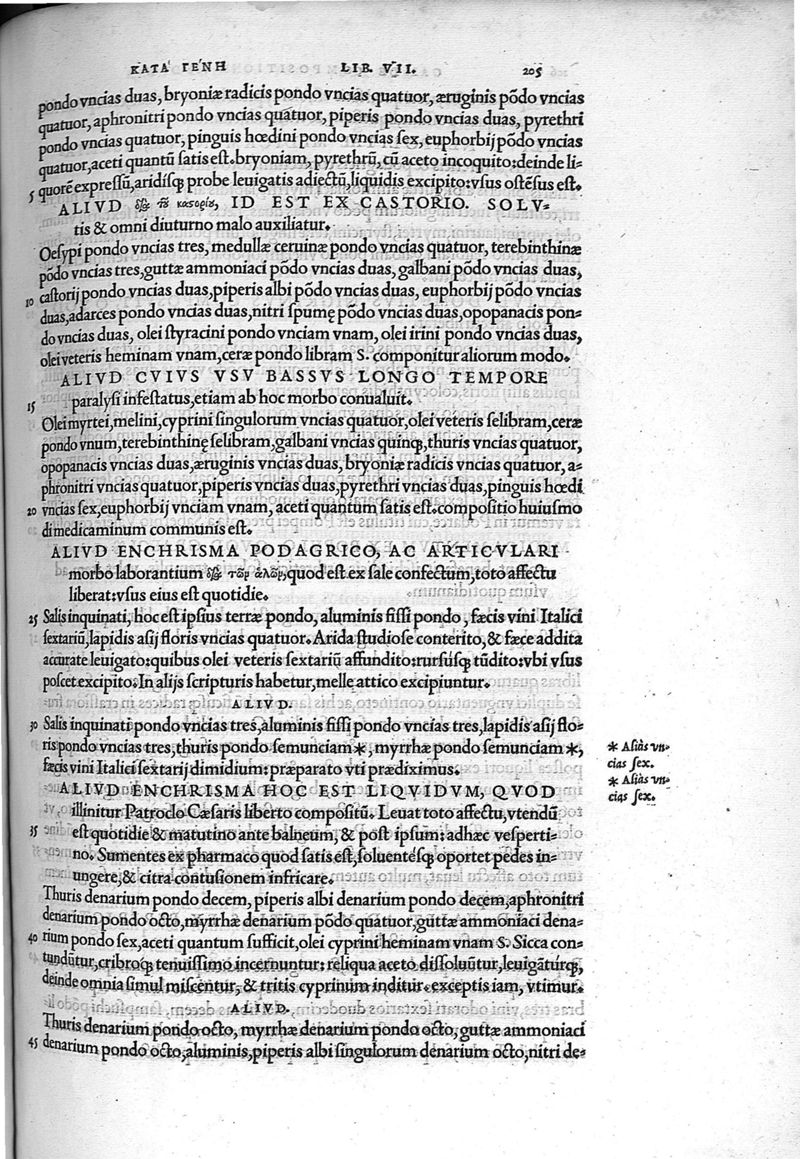 ΚΑΤΑ' ΓΕ'ΝΗ LIB. VII. 205
pondo vncias duas, bryoniæ radicis pondo vncias quatuor, æruginis põdo vncias
quatuor, aphronitri pondo vncias quatuor, piperis pondo vncias duas, pyrethri
pondo vncias quatuor, pinguis hœdini pondo vncias ſex, euphorbij põdo vncias
quatuor, aceti quantũ ſatis eſt. bryoniam, pyrethrũ, cũ aceto incoquito: deinde li-
5 quorẽ expreſſũ, aridiſq; probe leuigatis adiectũ, liquidis excipito: vſus oſtẽſus eſt.
ALIVD διὰ τοῦ καστορίου, ID EST EX CASTORIO. SOLV-
tis & omni diuturno malo auxiliatur.
Oeſypi pondo vncias tres, medullæ ceruinæ pondo vncias quatuor, terebinthinæ
põdo vncias tres, guttæ ammoniaci põdo vncias duas, galbani põdo vncias duas,
10 caſtorij pondo vncias duas, piperis albi põdo vncias duas, euphorbij põdo vncias
duas, adarces pondo vncias duas, nitri ſpumę põdo vncias duas, opopanacis pon-
do vncias duas, olei ſtyracini pondo vnciam vnam, olei irini pondo vncias duas,
olei veteris heminam vnam, ceræ pondo libram S. componitur aliorum modo.
ALIVD CVIVS VSV BASSVS LONGO TEMPORE
15 paralyſi infeſtatus, etiam ab hoc morbo conualuit.
Olei myrtei, melini, cyprini ſingulorum vncias quatuor, olei veteris ſelibram, ceræ
pondo vnum, terebinthinę ſelibram, galbani vncias quinq;, thuris vncias quatuor,
opopanacis vncias duas, æruginis vncias duas, bryoniæ radicis vncias quatuor, a-
phronitri vncias quatuor, piperis vncias duas, pyrethri vncias duas, pinguis hœdi
20 vncias ſex, euphorbij vnciam vnam, aceti quantum ſatis eſt. compoſitio huiuſmo
di medicaminum communis eſt.
ALIVD ENCHRISMA PODAGRICO, AC ARTICVLARI
morbo laborantium διὰ τῶν ἁλῶν, quod eſt ex ſale confectum, toto affectu
liberat: vſus eius eſt quotidie.
25 Salis inquinati, hoc eſt ipſius terræ pondo, aluminis fiſſi pondo, fæcis vini Italici
ſextariũ, lapidis aſij floris vncias quatuor. Arida ſtudioſe conterito, & fæce addita
accurate leuigato: quibus olei veteris ſextariũ affundito: rurſúſq; tũdito: vbi vſus
poſcet excipito. In alijs ſcripturis habetur, melle attico excipiuntur.
ALIVD.
30 Salis inquinati pondo vncias tres, aluminis fiſſi pondo vncias tres, lapidis aſij flo-
ris pondo vncias tres, thuris pondo ſemunciam *, myrrhæ pondo ſemunciam *,
fæcis vini Italici ſextarij dimidium: præparato vti prædiximus.
* Aliàs vn-
cias ſex.
* Aliàs vn-
cias ſex.
ALIVD ENCHRISMA HOC EST LIQVIDVM, QVOD
illinitur Patroclo Cæſaris liberto compoſitũ. Leuat toto affectu, vtendũ
35 eſt quotidie & matutino ante balneum, & poſt ipſum: adhæc veſperti-
no. Sumentes ex pharmaco quod ſatis eſt, ſoluentéſq; oportet pedes in-
ungere, & citra contuſionem infricare.
Thuris denarium pondo decem, piperis albi denarium pondo decem, aphronitri
denarium pondo octo, myrrhæ denarium põdo quatuor, guttæ ammoniaci dena-
40 rium pondo ſex, aceti quantum ſufficit, olei cyprini heminam vnam S. Sicca con-
tundũtur, cribroq; tenuiſſimo incernuntur: reliqua aceto diſſoluũtur, leuigãturq;,
deinde omnia ſimul miſcentur, & tritis cyprinum inditur. exceptis iam, vtimur.
ALIVD.
Thuris denarium pondo octo, myrrhæ denarium pondo octo, guttæ ammoniaci
45 denarium pondo octo, aluminis, piperis albi ſingulorum denarium octo, nitri de-